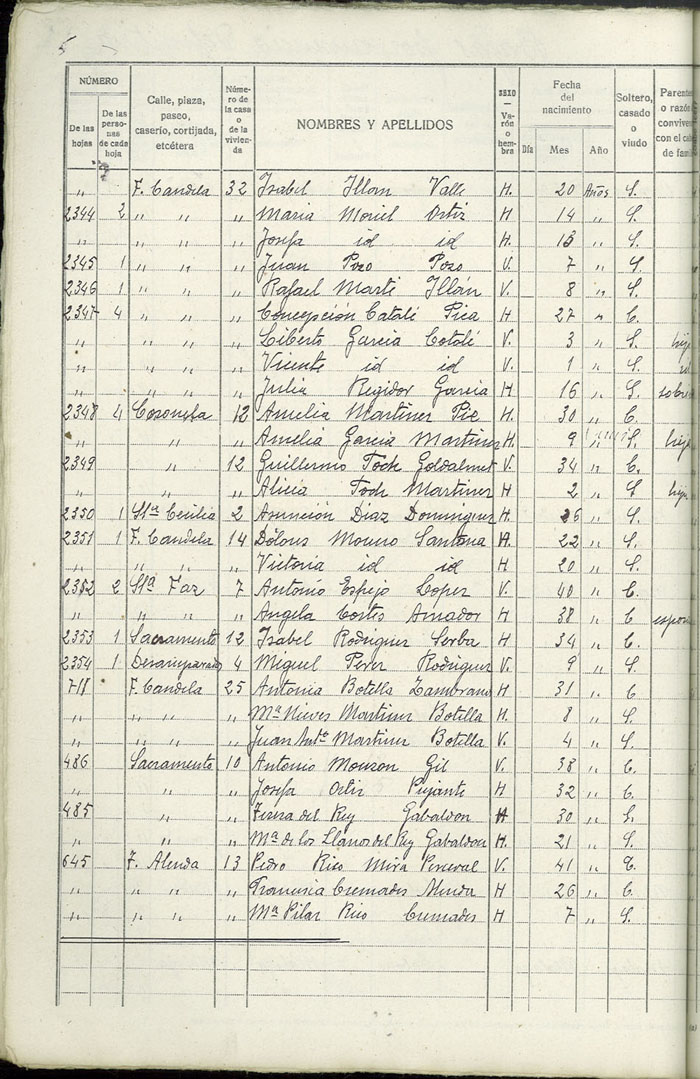 5
NÚMERO
De las hojas
De las perso- nas de cada hoja
Calle, plaza, paseo, caserío, cortijada, etcétera
Núme- ro de la casa o de la vivien- da
NOMBRES Y APELLIDOS
SEXO — Va- rón o hem- bra
Fecha del nacimiento
Día Mes Año
Soltero, casado o viudo
Parente
o razón
conviven
con el cab
de fami
" F. Candela 32 Isabel Illán Valle H. 20 Años S.
2344 2 " " " Maria Moriel Ortiz H 14 " S.
" " " " Josefa id id H. 13 " S.
2345 1 " " " Juan Pozo Pozo V. 7 " S.
2346 1 " " " Rafael Marti Illán V. 8 " S.
2347 4 " " " Concepción Catalé Pica H 27 " C.
" " " " Liberto Garcia Cotolé V. 3 " S. hijo
" " " " Vicente id id V. 1 " S. id
" " " " Julia Regidor Garcia H 16 " S. sobri
2348 4 12 Amelia Martiner Pie H. 30 " C.
" " " Amelia Garcia Martiner H. 9 " S. hij
2349 " 12 Guillermo Foch V. 34 " C.
" " " Alicia Foch Martiner H 2 " S hija
2350 1 Stª Cecilia 2 Asunción Diaz Dominguez H. 26 " S.
2351 1 F. Candela 14 Dolores Moreno Santona H. 22 " S.
" " " Victoria id id H 20 " S.
2352 2 Stª Faz 7 Antonio Espejo Lopez V. 40 " C.
" " " " Angela Cortes Amador H 38 " C espos
2353 1 Sacramento 12 Isabel Rodriguez Serba H 34 " C.
2354 1 Desamparados 4 Miguel Perez Rodriguez V. 9 " S.
711 F. Candela 25 Antonia Botella Zamorano H 31 " C
" " " " Mª Nieves Martiner Botella H. 8 " S.
" " " " Juan Antº Martiner Botella V. 4 " S.
486 Sacramento 10 Antonio Monzon Gil V. 38 " C.
" " " Josefa Ortiz Pujante H 32 " C.
485 " " Teresa del Rey Gabaldon H 30 " S.
" " " Mª de los Llanos del Rey Gabaldon H. 21 " S.
645 F. Alenda 13 Pedro Rico Mira Perceval V. 41 " C.
" " " " Francisca Cremades Alenda H 26 " C.
" " " " Mª Pilar Rico Cremades H 7 " S.